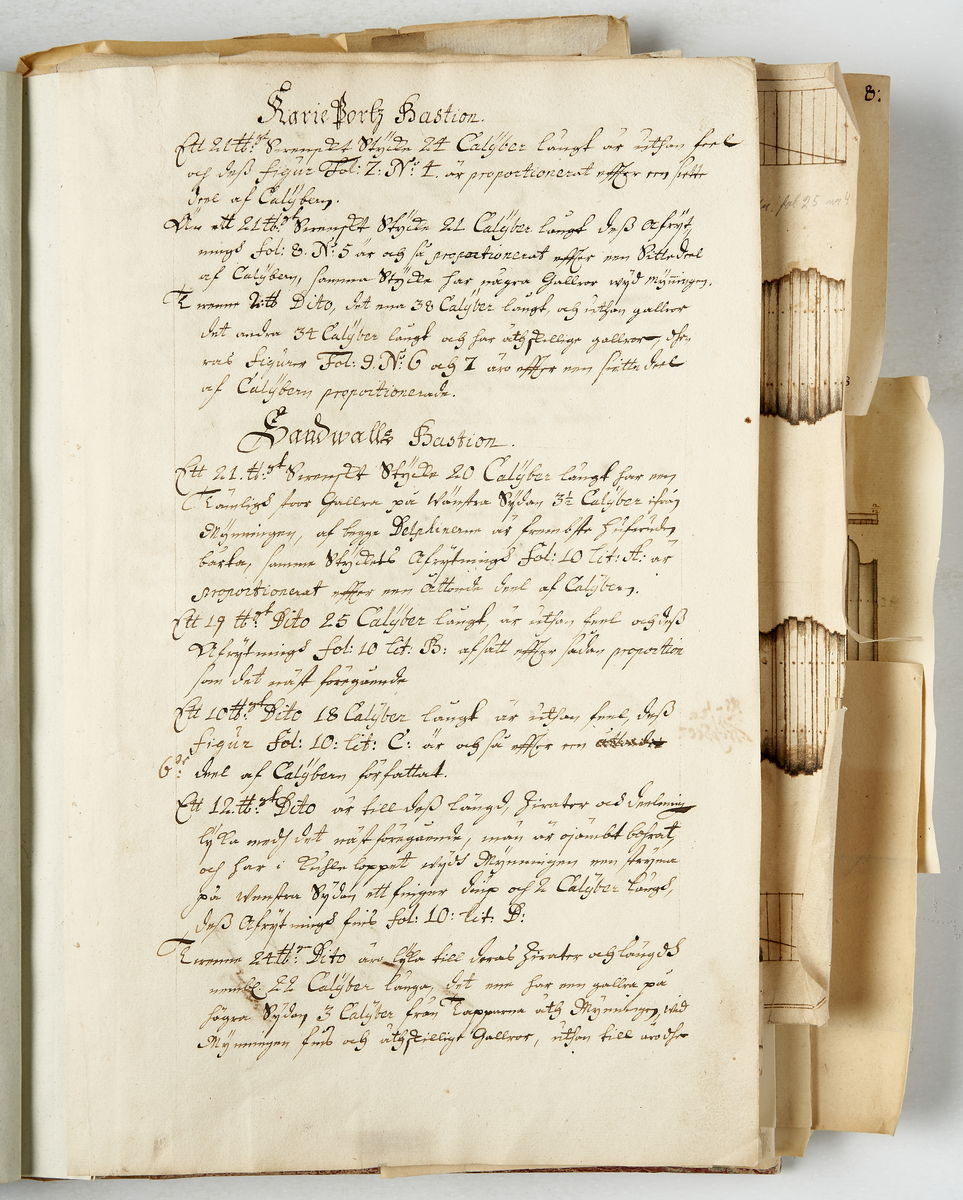 Karie Portz Bastion.
Ett 21 ttb:gt Swenskt Stÿcke 24 Calÿber långt är uthan feel
och deß figur Fol: 7: N:o 4. är proportionerat effter een siette
deel af Calÿbern.
Än ett 21 ttb:gt Swenskt Stÿcke 21 Calÿber långt deß Afrÿt,
ningh fol: 8. N:o 5 är och så proportionerat effter een Siettedeel
af Calÿbern, samma Stÿcke har några Gallror wÿd Mÿnningen.
Twenne 2: ttb Dito, det ena 38 Calÿber långt, och uthan gallror
det andra 34 Calÿber långt och har åthskillige gallror, dhen
ras figurer Fol: 9. N:o 6 och 7 äro effter een siette deel
af Calÿbern proportionerade.
Sandwalls Bastion.
Ett 21. tt:gt Swenskt Stÿcke 20 Calÿber långt har een
Tämligh stoor Gallra på Wänstra Sÿdan 3½ Calÿber ifrån
Mÿnningen, af begge Delphinerne är frembste hufwudet
barka, samme Stÿckets Afrÿtningh Fol: 10 Lit: A: är
proportionerat effter een Ottonde deel af Calÿbern.
Ett 19 tt:gt Dito 25 Calÿber långt, är uthan feel och deß
Afrÿtningh fol: 10 Lit: B: afsatt effter sådan proportion
som det näst föregående
Ett 10 ttb:gt Dito 18 Calÿber långt är uthan feel, deß
figur fol: 10: Lit: C: är och så effter een
6:te deel af Calÿbern författat.
Ett 12. tt:gt Dito är till deß längd, Zirater och deelning
lÿka medh det näst föregående, män är ojämbt båhrat,
och har i Kuhleloppet wÿdh Mÿnningen een strÿma
på wenstra Sÿdan ett finger diup och 2 Calÿber långh,
deß Afrÿtningh fins fol: 10: Lit: D:
Twenne 24 tt:r Dito äro lÿka till deras Zirater och längdh
nembl. 22 Calÿber långa, det ene har een gallra på
högra Sÿdan 3 Calÿber från Tapparna åth Mÿnningen, wid
Mÿnningen fins och åthskillige Gallror, uthan till äro dhe
8:
fol 25